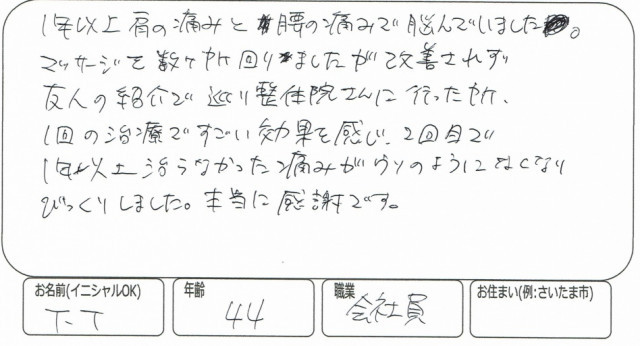 1年以上肩の痛みと腰の痛みで悩んでいました。
マッサージを数ヶ所回りましたが改善されず
友人の紹介で巡り整体院さんに行った所、
1回の治療ですごい効果を感じ、2回目で
1年以上治らなかった痛みがウソのようになくなり
びっくりしました。本当に感謝です。
お名前(イニシャルOK) 年齢 職業 お住まい(例:さいたま市)
T.T 44 会社員